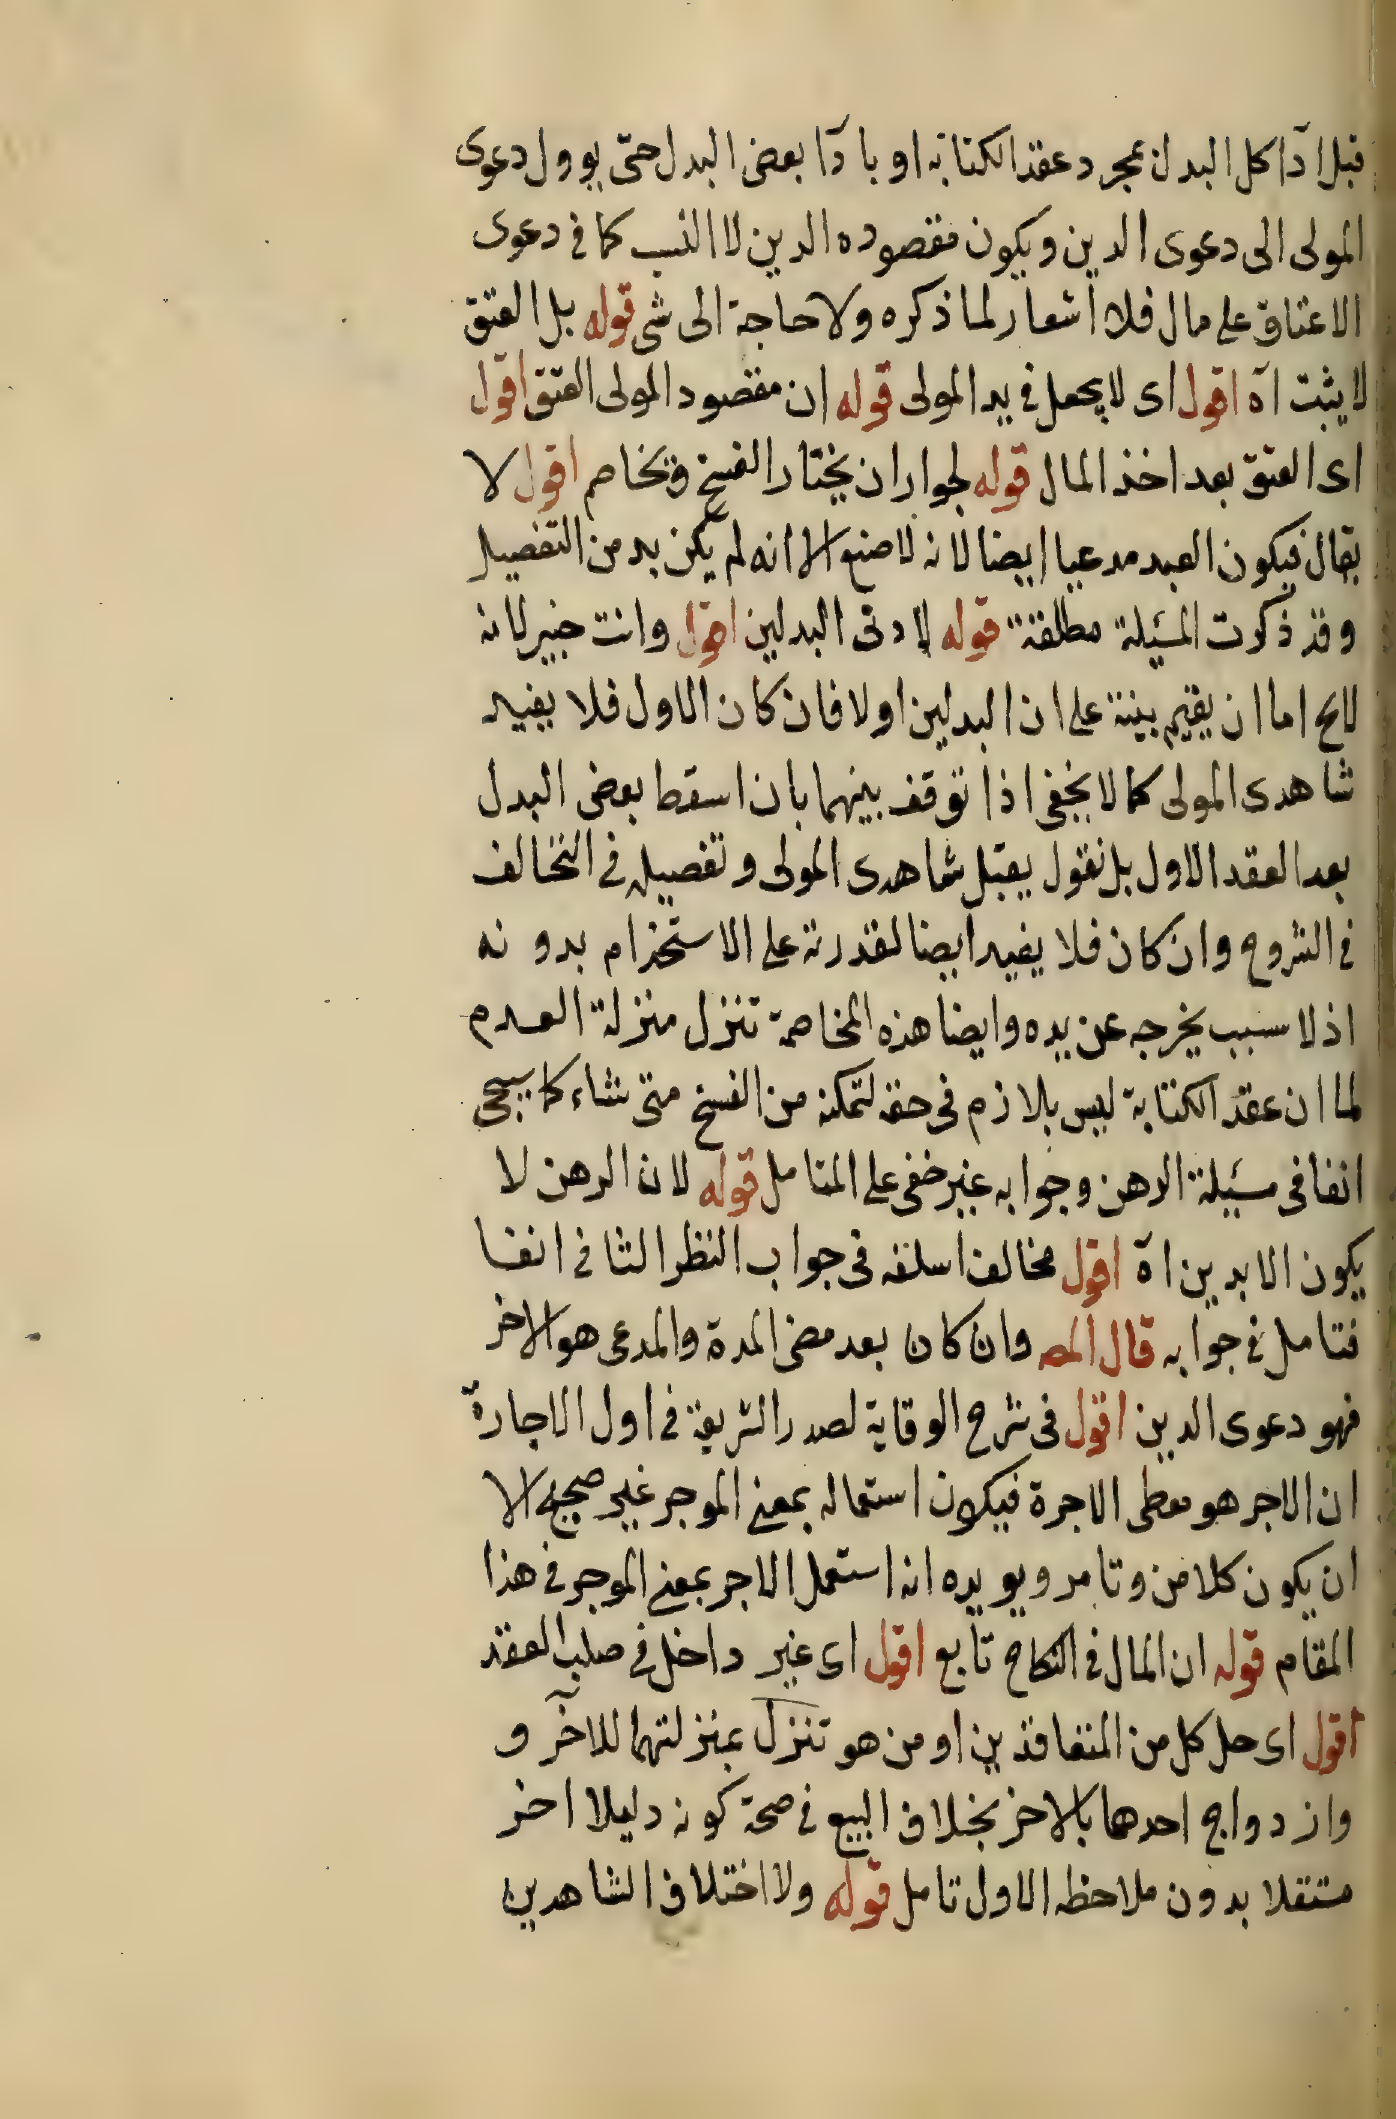 قبل اداكل البدل بمجرد عقد الكتابة او با دا بعض البدل حتى يوول دعوى
المولى الى دعوى الدين ويكون مقصوده الدين لا النسب كما فى دعوى
الاعتاق على مال فلا اشعار لما ذكره ولا حاجة الى شى قوله بل العتق
لا يثبت اه اقول اى لا يجعل فى يد المولى قوله ان مقصود المولى العتق اقول
اى العتق بعد اخذ المال قوله لجواز ان يختار الفسخ ويخاصم اقول لا
يقال فيكون العبد مدعيا ايضا لانه لا صنع الا انه لم يكن بد من التفصيل
وقد ذكرت المسئلة مطلقة قوله لادنى البدلين اقول وانت خبير لانه
اما ان يقيم بينة على ان البدلين اولا فان كان الاول فلا يفيد
شاهدى المولى كما لا يخفى اذا توقف بينهما بان اسقط بعض البدل
بعد العقد الاول بل نقول يقبل شاهدى المولى وتفصيله فى التخالف
فى الشروح وان كان فلا يفيد ايضا لقدرته على الاستخدام بدونه
اذ لا سبب يخرجه عن يده وايضا هذه المخاصمة تنزل منزلة العدم
لما ان عقد الكتابة ليس بلازم فى حقه لتمكنه من الفسخ متى شاء كما سيجى
انفا فى مسئلة الرهن وجوابه غير خفى على المتامل قوله لان الرهن لا
يكون الا بدين اه اقول مخالف اسلفه فى جواب النظر الثانى انفا
فتامل فى جوابه قال المص وان كان بعد مضى المدة والمدعى هو الاخر
فهو دعوى الدين اقول فى شرح الوقاية لصدر الشريعة فى اول الاجارة
ان الاجر هو معطى الاجرة فيكون استعماله بمعنى الموجر غير صحيح الا
ان يكون كلامن وتامر ويويده انه استعمل الاجر بمعنى الموجر فى هذا
المقام قوله ان المال فى النكاح تابع اقول اى غير داخل فى صلب العقد
اقول اى حل كل من المتعاقدين او من هو تنزل بمنزلتهما للآخر و
وازدواج احدهما بالاخر بخلاف البيع فى صحة كونه دليلا اخر
مستقلا بدون ملاحظه الاول تامل قوله ولا اختلاف الشاهدين